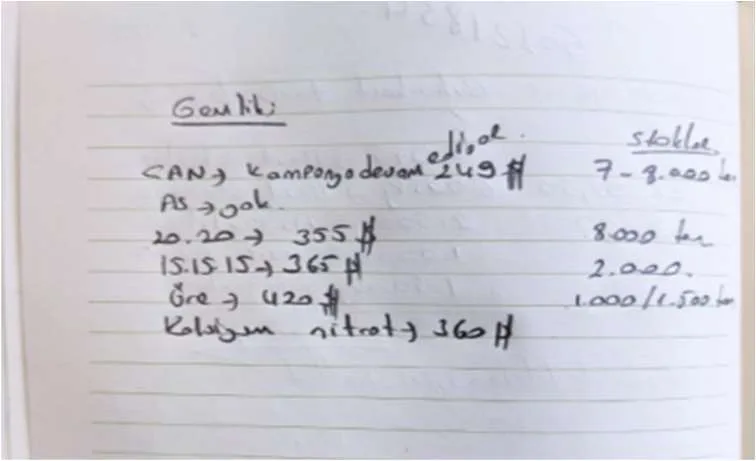 Gemlik:
Stoklar
CAN → Kampanya devam ediyor. 249 $ 7 - 8.000 ton
AS → yok.
20.20 → 355 $ 8.000 ton
15.15.15 → 365 $ 2.000.
Üre → 420 $ 1.000/1.500 ton
Kalsiyum nitrat → 360 $